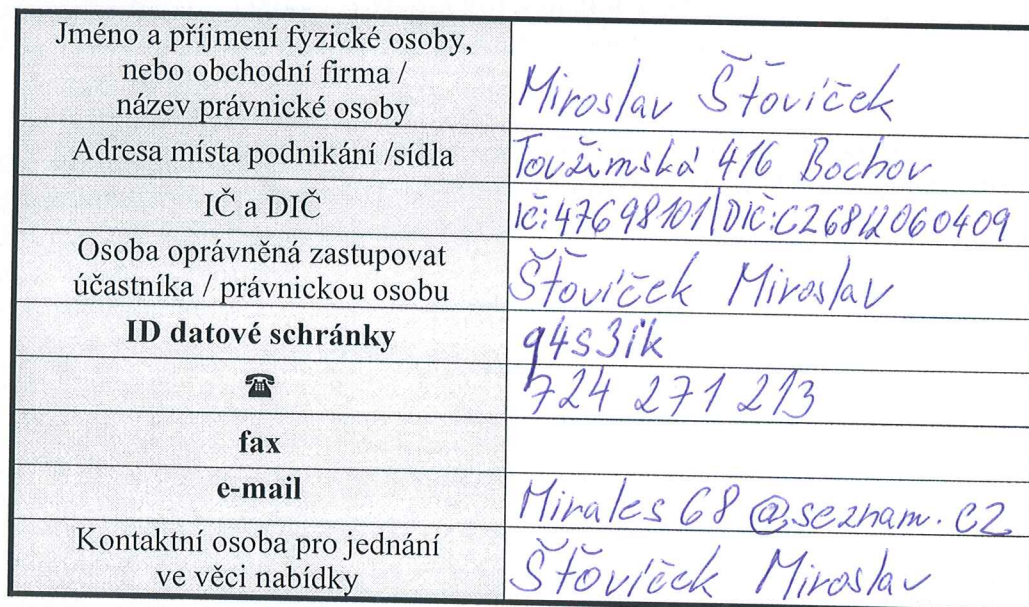 Jméno a příjmení fyzické osoby,
nebo obchodní firma /
název právnické osoby
Miroslav Šťovíček
Adresa místa podnikání /sídla
Toužimská 416 Bochov
IČ a DIČ
IČ:47698101|DIČ:CZ6812060409
Osoba oprávněná zastupovat
účastníka / právnickou osobu
Šťovíček Miroslav
ID datové schránky
q4s3ik
☎
724 271 213
fax
e-mail
Mirales68@seznam.cz
Kontaktní osoba pro jednání
ve věci nabídky
Šťovíček Miroslav